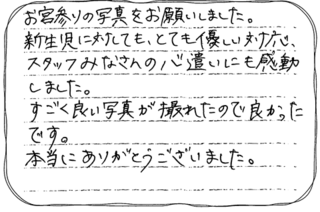 お宮参りの写真をお願いしました。
新生児に対しても、とても優しい対応、
スタッフみなさんの心遣いにも感動
しました。
すごく良い写真が撮れたので良かった
です。
本当にありがとうございました。